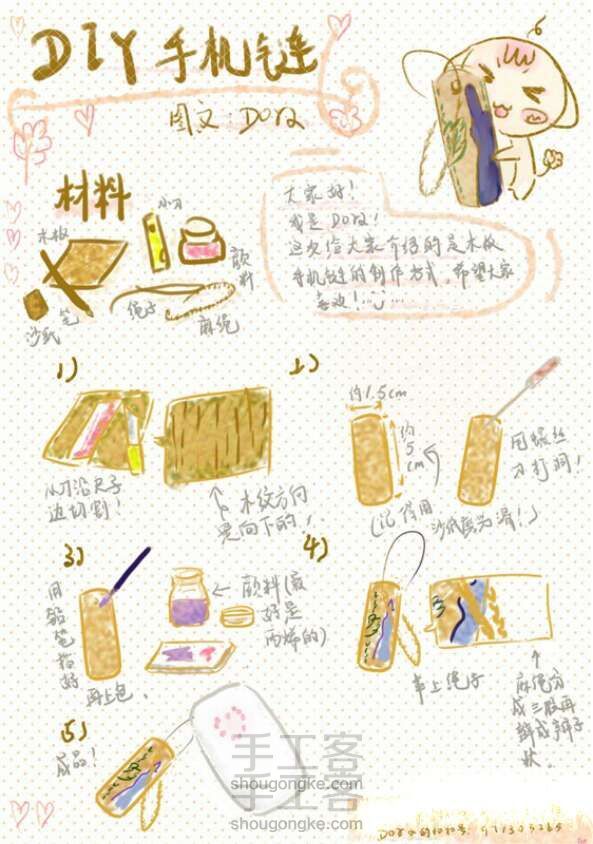 DIY 手机链
图文：DO奴
材料
木板
小刀
颜料
沙纸
笔
绳子
麻绳
大家好！
我是DO奴！
这次给大家介绍的是木板
手机链的制作方式，希望大家
喜欢！
1)
小刀沿尺子
边切割！
木纹方向
是向下的！
2)
约1.5cm
约5cm
用螺丝
刀打洞！
(记得用
沙纸磨光滑！)
3)
用铅笔描好
再上色。
颜料(最
好是
丙烯的)
4)
串上绳子
麻绳分
成三股再
辫成辫子
状。
5)
成品！
手工客
shougongke.com
手工客
shougongke.com